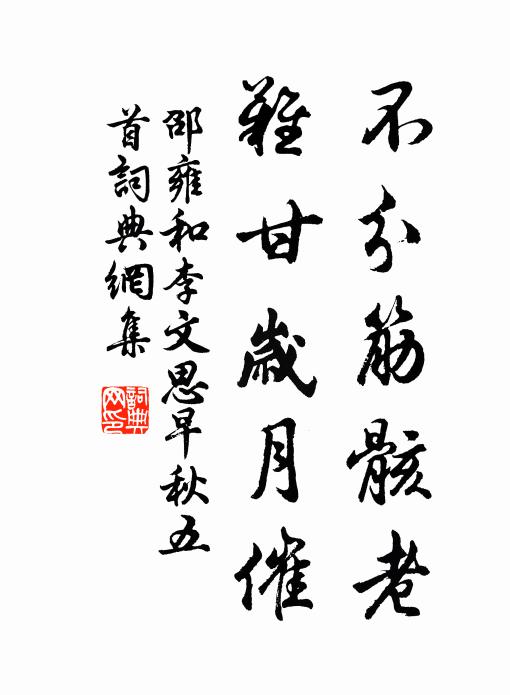 不分筋骸老
難甘歲月催
邵雍和李文思早秋五
首詞典網集
詞典
网印